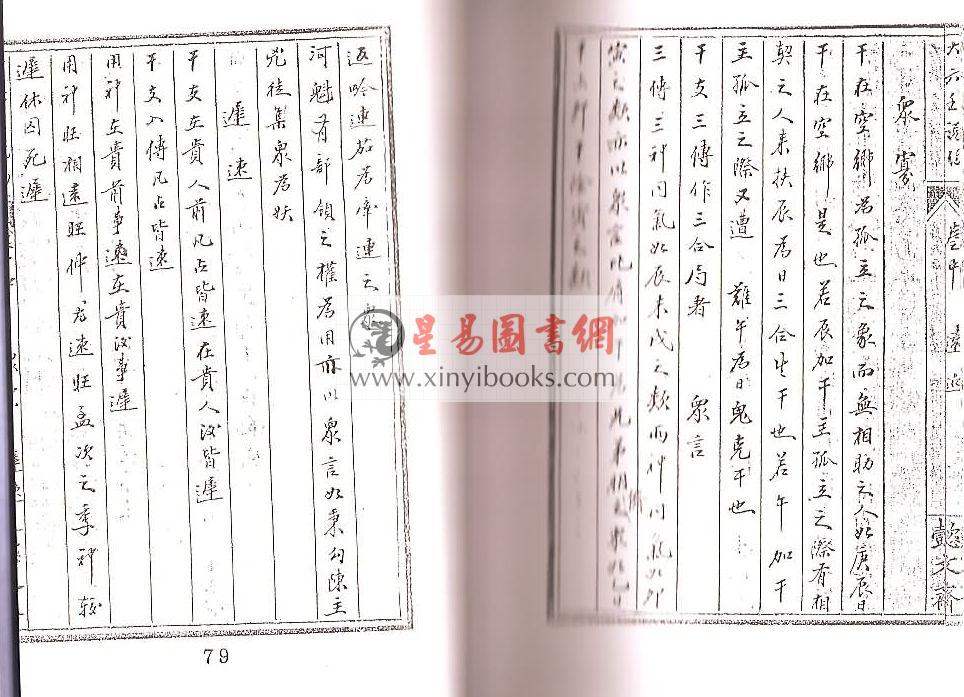 大六壬
眾寡
干在空鄉為孤立之象而無相助之人如庚辰日
干在空鄉是也若辰加干主孤立之際有相
契之人来扶辰為日三合生干也若午加干
主孤立之際又遭 難午為日鬼克干也
干支三傳作三合局者 眾言
三傳三神同氣如辰未戌之類而神 氣如卯
寅之類亦以眾言比肩 兄弟 乙日
返吟連茹居牽連之象
河魁有部領之權為用亦以眾言如乘勾陳主
兇徒集眾為妖
遲速
干支在貴人前凡占皆速在貴人後皆遲
干支入傳凡占皆速
用神在貴前事速在貴後事遲
用神旺相速旺仲尤速旺孟次之季神較
遲休囚死遲
懿文齋
79
星易圖書網
www.xinyibooks.com